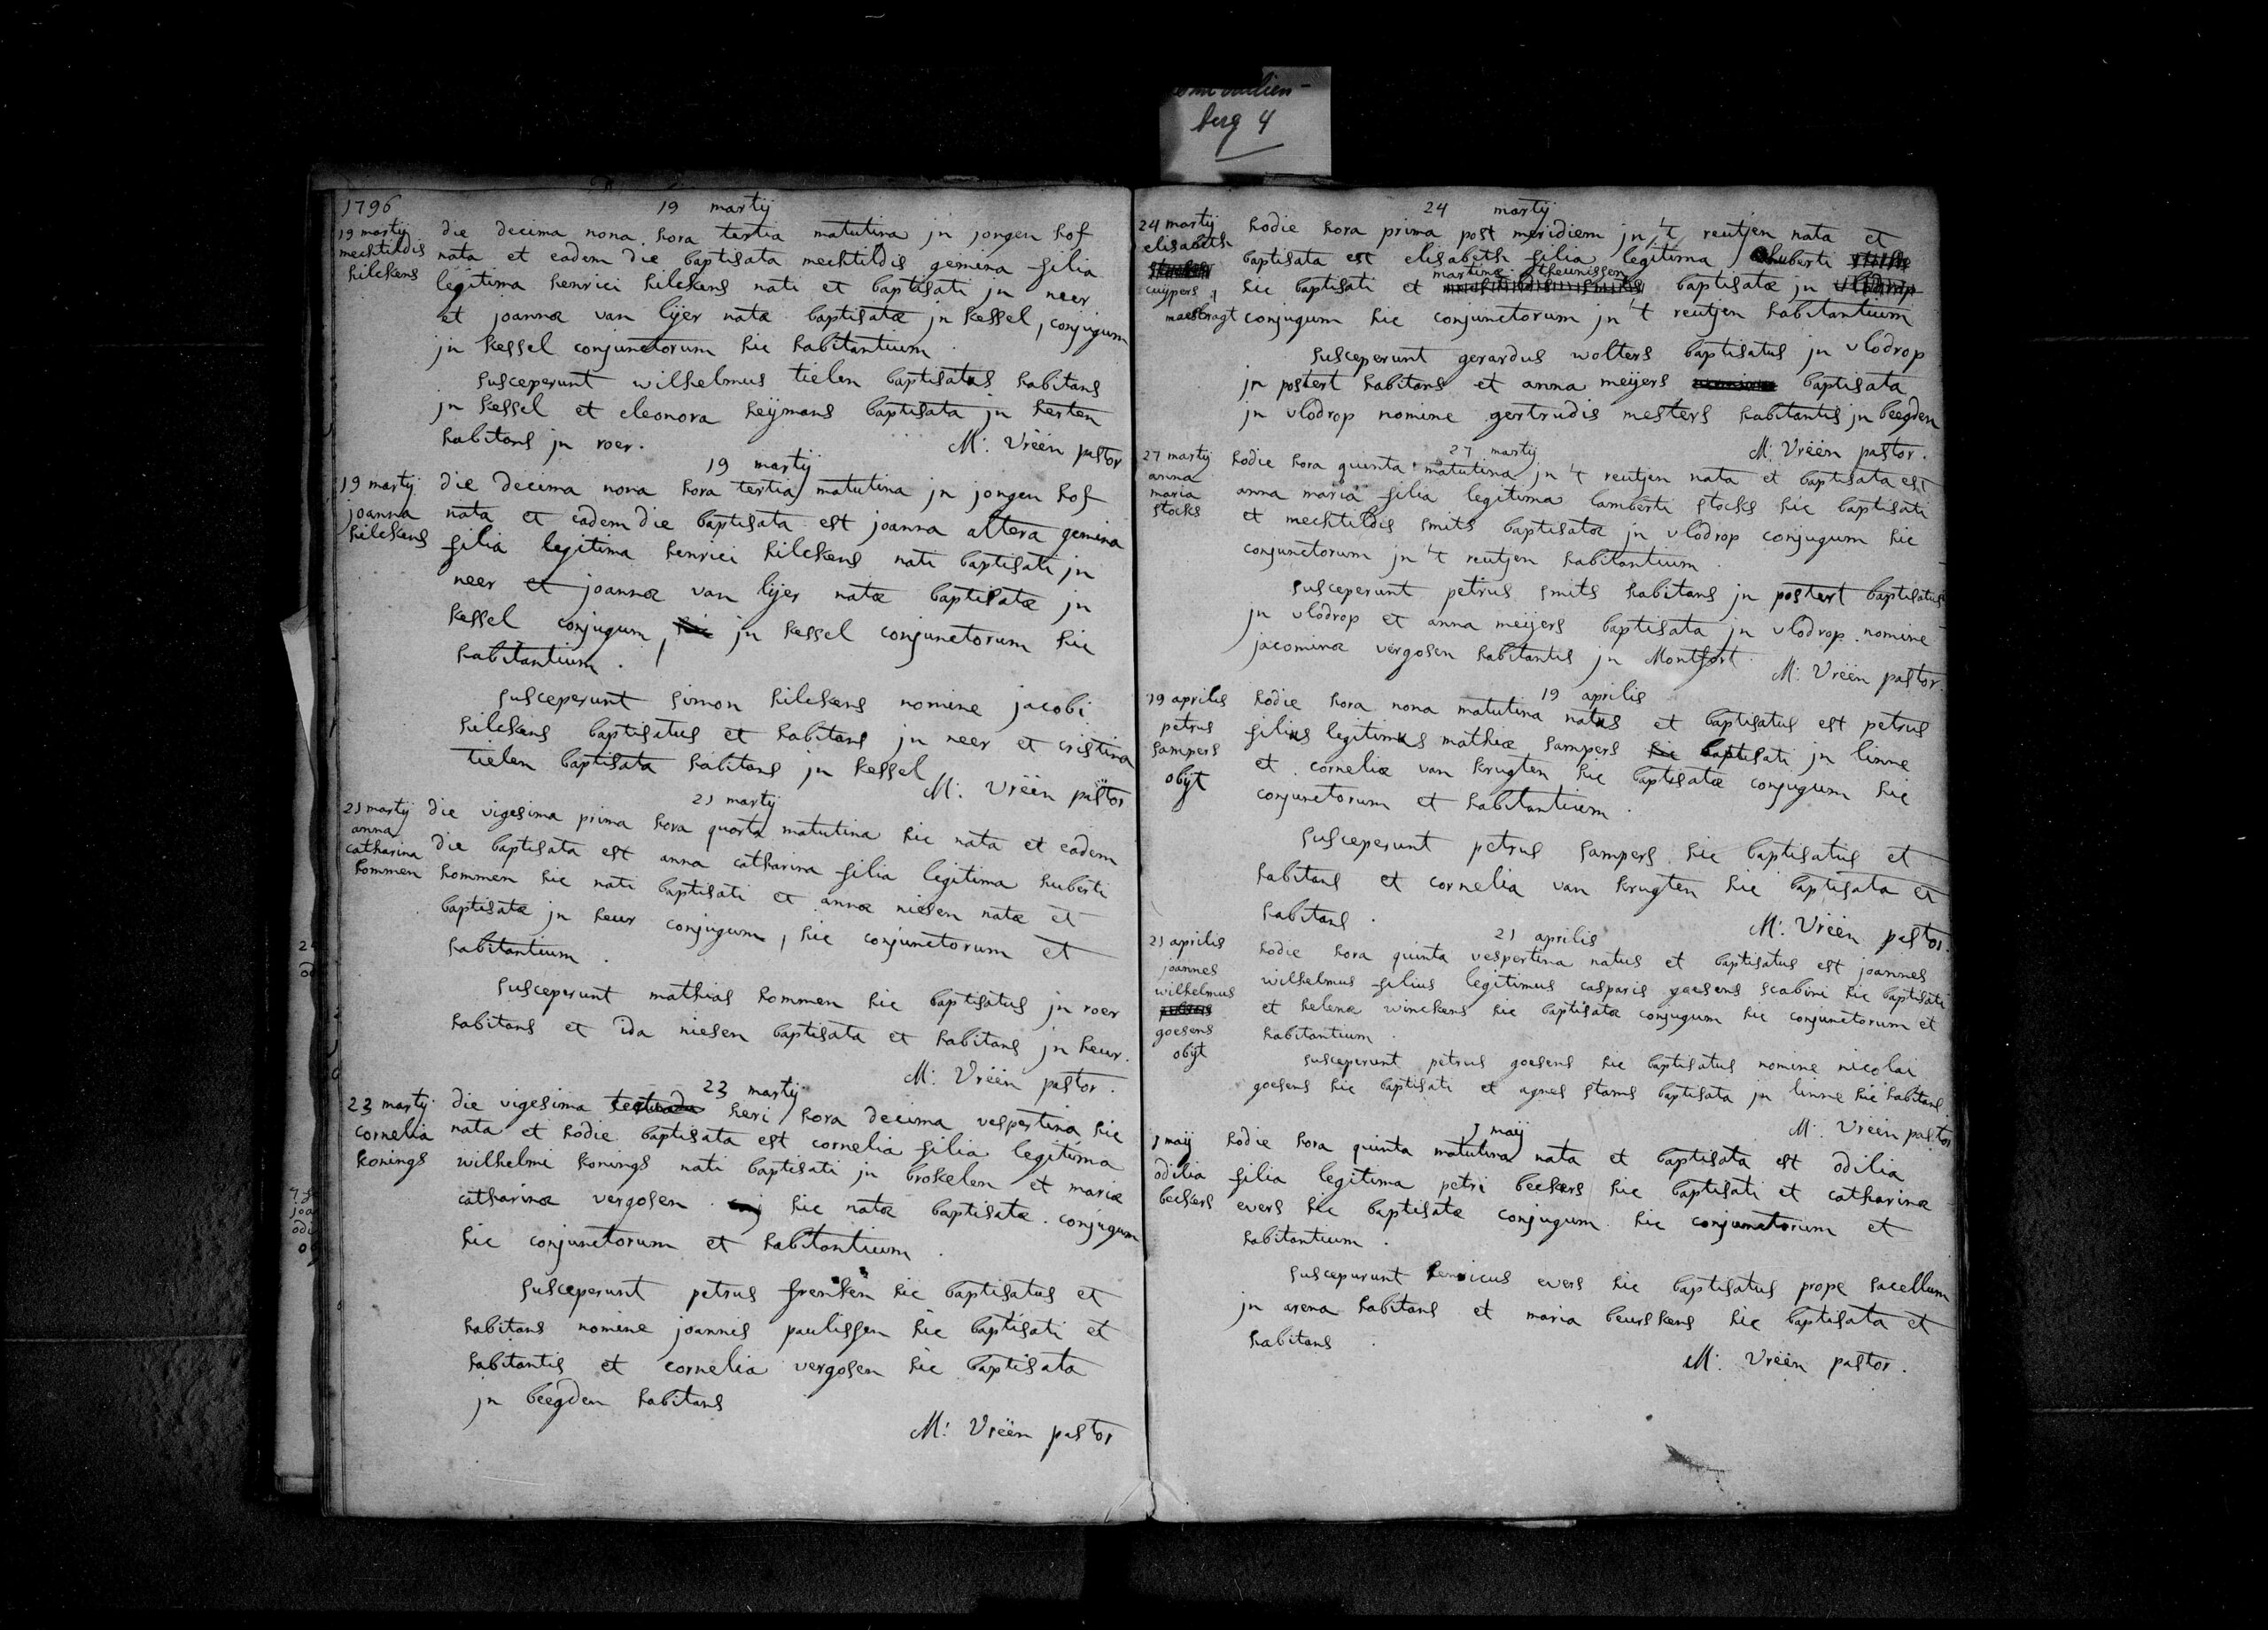 berg 4
1796
19 martij
19 martij
mechtildis
hilckens
die decima nona hora tertia matutina jn jongen hof
nata et eadem die baptisata mechtildis gemina filia
legitima henrici hilckens nati et baptisati jn neer
et joannæ van lijer natæ baptisatæ jn kessel, conjugum
jn kessel conjunctorum hic habitantium.
susceperunt wilhelmus tielen baptisatus habitans
jn kessel et eleonora heijmans baptisata jn herten
habitans jn roer.
M: Vrëën pastor
19 martij
19 martij
joanna
hilckens
die decima nona hora tertia matutina jn jongen hof
nata et eadem die baptisata est joanna altera gemina
filia legitima henrici hilckens nati baptisati jn
neer et joannæ van lijer natæ baptisatæ jn
kessel conjugum, hic jn kessel conjunctorum hic
habitantium.
susceperunt simon hilckens nomine jacobi
hilckens baptisatus et habitans jn neer et cristina
tielen baptisata habitans jn kessel
M: Vrëën pastor
21 martij
21 martij
anna
catharina
hommen
die vigesima prima hora quarta matutina hic nata et eadem
die baptisata est anna catharina filia legitima huberti
hommen hic nati baptisati et annæ niesen natæ et
baptisatæ jn heur conjugum, hic conjunctorum et
habitantium.
susceperunt mathias hommen hic baptisatus jn roer
habitans et ida niesen baptisata et habitans jn heur.
M: Vrëën pastor.
23 martij
23 martij
cornelia
konings
die vigesima heri hora decima vespertina hic
nata et hodie baptisata est cornelia filia legitima
wilhelmi konings nati baptisati jn brokelen et mariæ
catharinæ vergosen hic natæ baptisatæ conjugum
hic conjunctorum et habitantium.
susceperunt petrus frenken hic baptisatus et
habitans nomine joannis paulissen hic baptisati et
habitantis et cornelia vergosen hic baptisata
jn beegden habitans
M: Vrëën pastor
24 martij
24 martij
elisabeth
cuijpers
maesbragt
hodie hora prima post meridiem jn 't reutjen nata et
baptisata est elisabeth filia legitima huberti
martinæ theunissen
hic baptisati et baptisatæ jn vlodrop
conjugum hic conjunctorum jn 't reutjen habitantium
susceperunt gerardus wolters baptisatus jn vlodrop
jn postert habitans et anna meijers baptisata
jn vlodrop nomine gertrudis mesters habitantis jn beegden
M: Vrëën pastor.
27 martij
27 martij
anna
maria
stocks
hodie hora quinta matutina jn 't reutjen nata et baptisata est
anna maria filia legitima lamberti stocks hic baptisati
et mechtildis smits baptisatæ jn vlodrop conjugum hic
conjunctorum jn 't reutjen habitantium.
susceperunt petrus smits habitans jn postert baptisatus
jn vlodrop et anna meijers baptisata jn vlodrop nomine
jacominæ vergosen habitantis jn Montfort.
M: Vrëën pastor.
19 aprilis
19 aprilis
petrus
sampers
obijt
hodie hora nona matutina natus et baptisatus est petrus
filius legitimus mathiæ sampers hic baptisati jn linne
et corneliæ van krugten hic baptisatæ conjugum hic
conjunctorum et habitantium.
susceperunt petrus sampers hic baptisatus et
habitans et cornelia van krugten hic baptisata et
habitans.
M: Vrëën pastor.
21 aprilis
21 aprilis
joannes
wilhelmus
goesens
obijt
hodie hora quinta vespertina natus et baptisatus est joannes
wilhelmus filius legitimus casparis goesens scabini hic baptisati
et helenæ winckens hic baptisatæ conjugum hic conjunctorum et
habitantium.
susceperunt petrus goesens hic baptisatus nomine nicolai
goesens hic baptisati et agnes stams baptisata jn linne hic habitans.
M: Vrëën pastor
1 maij
1 maij
odilia
beckers
hodie hora quinta matutina nata et baptisata est odilia
filia legitima petri beckers hic baptisati et catharinæ
evers hic baptisatæ conjugum hic conjunctorum et
habitantium.
susceperunt henricus evers hic baptisatus prope sacellum
jn arena habitans et maria beurskens hic baptisata et
habitans.
M: Vrëën pastor.